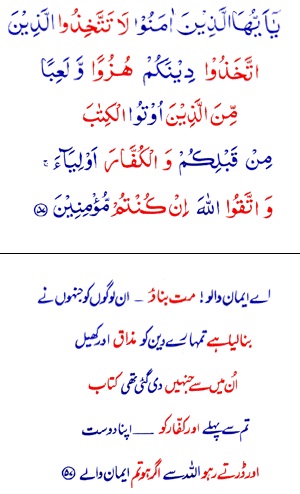 یٰۤاَیُّهَا الَّذِیْنَ اٰمَنُوْا لَا تَتَّخِذُوا الَّذِیْنَ
اتَّخَذُوْا دِیْنَكُمْ هُزُوًا وَّ لَعِبًا
مِّنَ الَّذِیْنَ اُوْتُوا الْكِتٰبَ
مِنْ قَبْلِكُمْ وَ الْكُفَّارَ اَوْلِیَآءَ ۚ
وَ اتَّقُوا اللّٰهَ اِنْ كُنْتُمْ مُّؤْمِنِیْنَ ۝۵۷
اے ایمان والو! مت بناؤ ۔ ان لوگوں کو جنہوں نے
بنا لیا ہے تمہارے دین کو مذاق اور کھیل
اُن میں سے جنہیں دی گئی تھی کتاب
تم سے پہلے اور کفّار کو ــــ اپنا دوست
اور ڈرتے رہو اللہ سے اگر ہو تم ایمان والے ۝۵۷